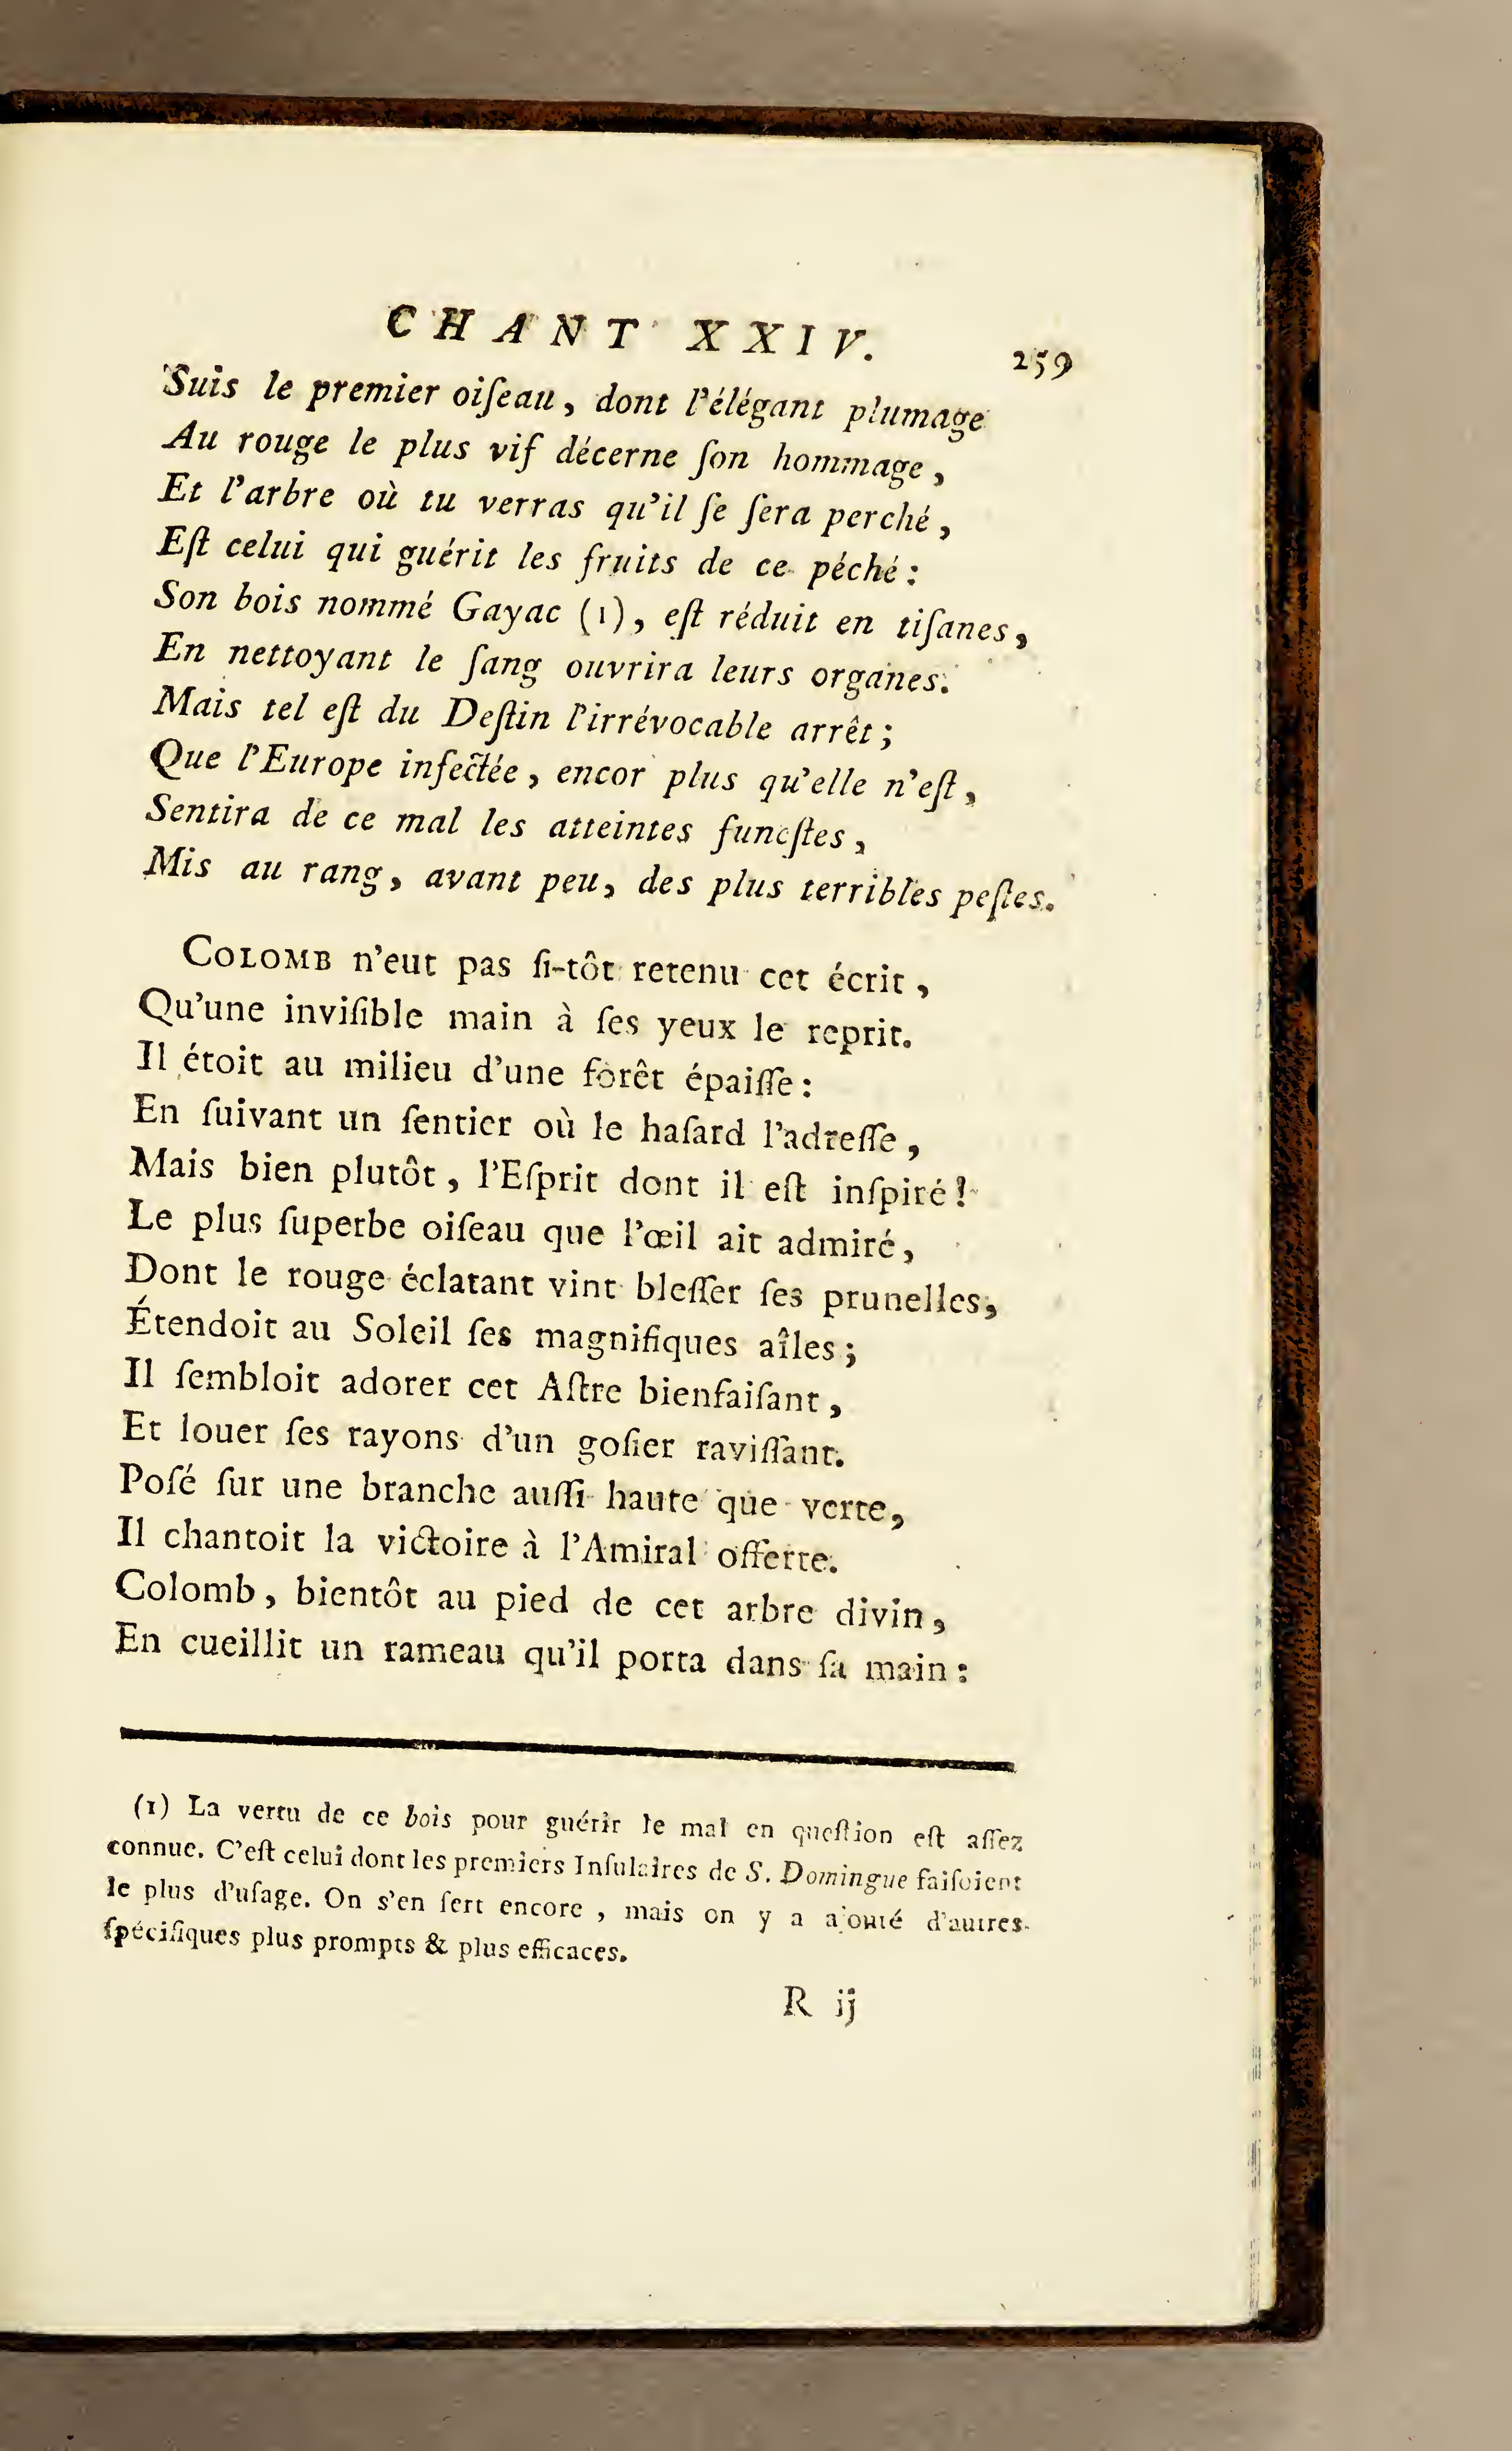 CHANT XXIV. 259
Suis le premier oiſeau, dont l'élégant plumage
Au rouge le plus vif décerne ſon hommage,
Et l'arbre où tu verras qu'il ſe ſera perché,
Eſt celui qui guérit les fruits de ce péché:
Son bois nommé Gayac (1), eſt réduit en tiſanes,
En nettoyant le ſang ouvrira leurs organes.
Mais tel eſt du Deſtin l'irrévocable arrêt;
Que l'Europe infectée, encor plus qu'elle n'eſt,
Sentira de ce mal les atteintes funeſtes,
Mis au rang, avant peu, des plus terribles peſtes.
COLOMB n'eut pas ſi-tôt retenu cet écrit,
Qu'une inviſible main à ſes yeux le reprit.
Il étoit au milieu d'une forêt épaiſſe:
En ſuivant un ſentier où le haſard l'adreſſe,
Mais bien plutôt, l'Eſprit dont il eſt inſpiré!
Le plus ſuperbe oiſeau que l'œil ait admiré,
Dont le rouge éclatant vint bleſſer ſes prunelles,
Étendoit au Soleil ſes magnifiques aîles;
Il ſembloit adorer cet Aſtre bienfaiſant,
Et louer ſes rayons d'un goſier raviſſant.
Poſé ſur une branche auſſi haute que verte,
Il chantoit la victoire à l'Amiral offerte.
Colomb, bientôt au pied de cet arbre divin,
En cueillit un rameau qu'il porta dans ſa main:
(1) La vertu de ce bois pour guérir le mal en queſtion eſt aſſez
connue. C'eſt celui dont les premiers Inſulaires de S. Domingue faiſoient
le plus d'uſage. On s'en ſert encore, mais on y a ajouté d'autres
ſpécifiques plus prompts & plus efficaces.
R ij